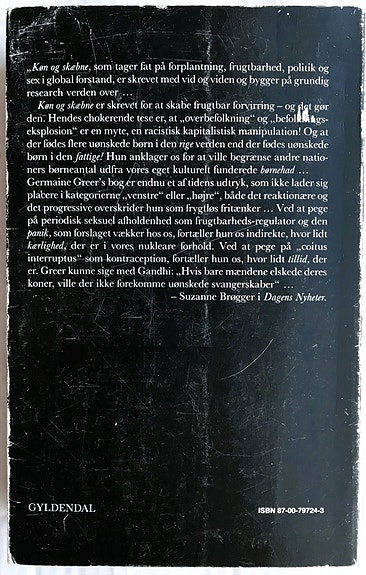 „Køn og skæbne, som tager fat på forplantning, frugtbarhed, politik og
sex i global forstand, er skrevet med vid og viden og bygger på grundig
research verden over ...
Køn og skæbne er skrevet for at skabe frugtbar forvirring – og det gør
den. Hendes chokerende tese er, at „overbefolkning“ og
eksplosion“ er en myte, en racistisk kapitalistisk manipulation! Og at
der fødes flere uønskede børn i den rige verden end der fødes uønskede
børn i den fattige! Hun anklager os for at ville begrænse andre natio-
ners børneantal udfra vores eget kulturelt funderede børnehad ...
Germaine Greer's bog er endnu et af tidens udtryk, som ikke lader sig
placere i kategorierne „venstre“ eller „højre“, både det reaktionære og
det progressive overskrider hun som frygtløs fritænker ... Ved at pege
på periodisk seksuel afholdenhed som frugtbarheds-regulator og den
panik, som forslaget vækker hos os, fortæller hun os indirekte, hvor lidt
kærlighed, der er i vores nukleare forhold. Ved at pege på „coitus
interruptus“ som kontraception, fortæller hun os, hvor lidt tillid, der
er. Greer kunne sige med Gandhi: „Hvis bare mændene elskede deres
koner, ville der ikke forekomme uønskede svangerskaber“ ...
– Suzanne Brøgger i Dagens Nyheter.
GYLDENDAL
ISBN 87-00-79724-3